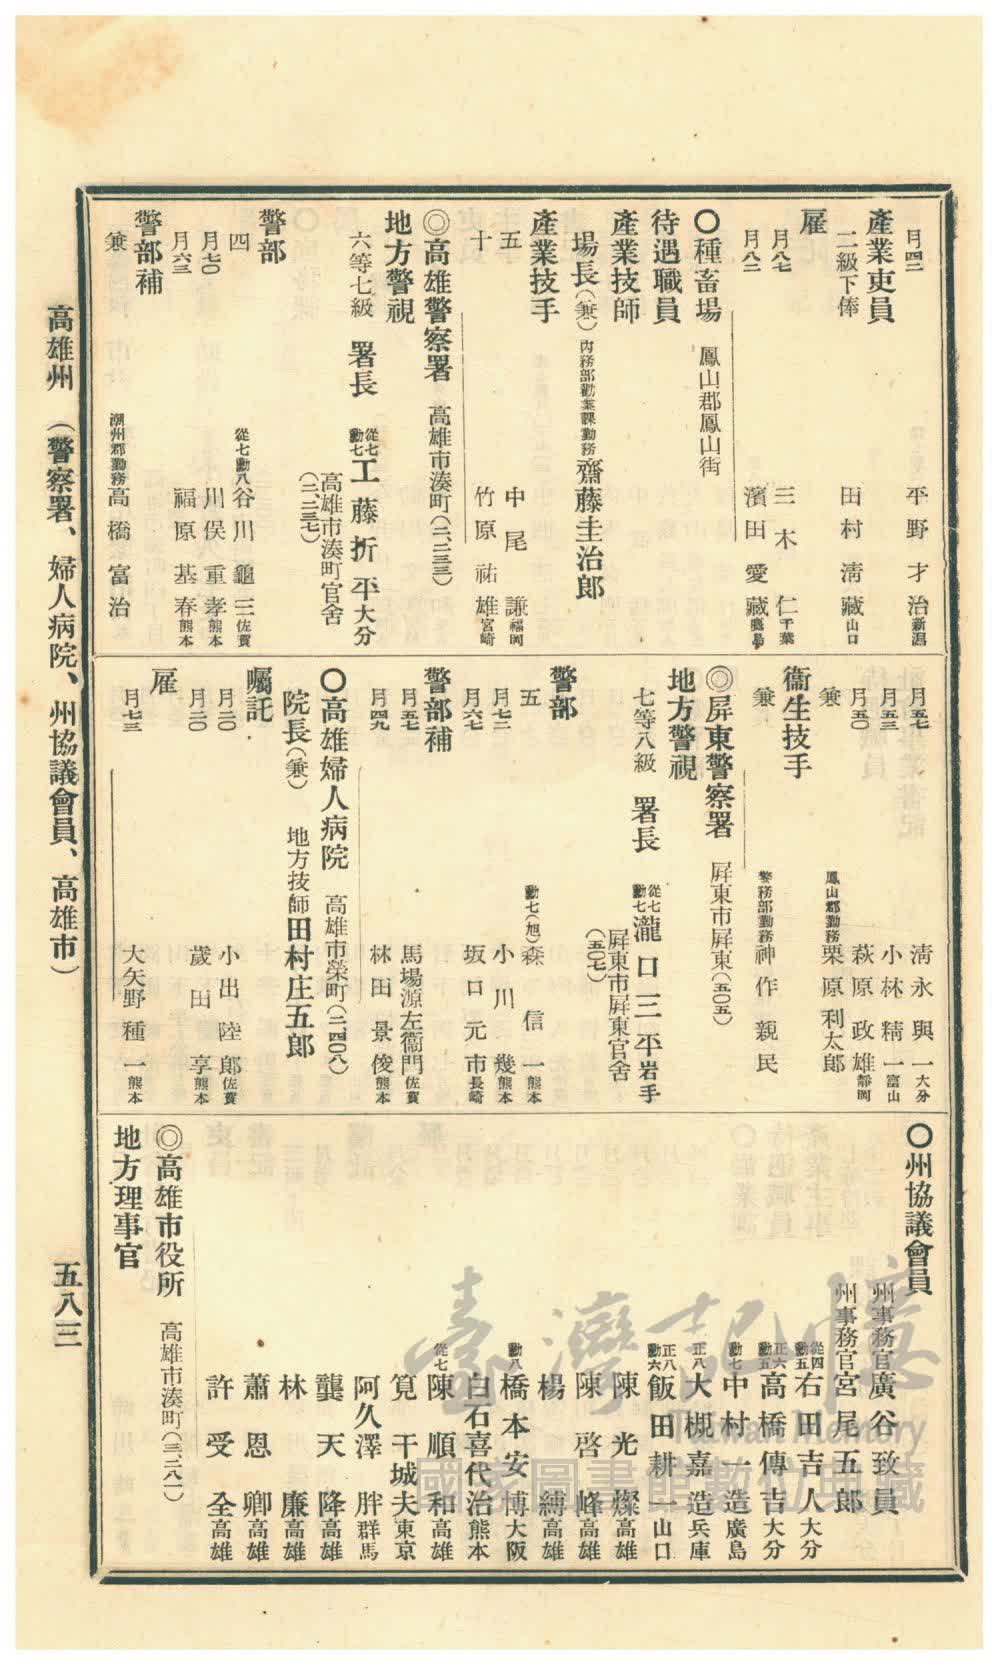 月四二 平野才治 新潟
產業吏員
二級下俸 田村淸藏 山口
雇
月八七 三木仁 千葉
月八二 濱田愛藏 廣島
〇種畜場 鳳山郡鳳山街
待遇職員
產業技師
場長(兼) 內務部勸業課勤務 齋藤圭治郎
產業技手
五 中尾謙 福岡
十 竹原祐雄 宮崎
◎高雄警察署 高雄市湊町(二、二三三)
地方警視
六等七級 署長 從七勳七 工藤折平 大分
高雄市湊町官舍
(二、二三七)
警部
四 從七勳八 谷川龜三 佐賀
月七〇 川俣重孝 熊本
月六三 福原基春 熊本
警部補
兼 潮州郡勤務 高橋富治
月五七 淸永興一 大分
月五三 小林精一 富山
月五〇 萩原政雄 靜岡
兼 鳳山郡勤務 栗原利太郎
衞生技手
兼 警務部勤務 神作親民
◎屏東警察署 屏東市屏東(五〇五)
地方警視
七等八級 署長 從七勳七 瀧口三平 岩手
屏東市屏東官舍
(五〇七)
警部
五 勳七(旭) 森信一 熊本
月七二 小川幾 熊本
月六七 坂口元市 長崎
警部補
月五七 馬場源左衞門 佐賀
月四九 林田景俊 熊本
〇高雄婦人病院 高雄市榮町(二、四〇八)
院長(兼) 地方技師 田村庄五郎
囑託
月二〇 小出陸郎 佐賀
月二〇 歲田享 熊本
雇
月七三 大矢野種一 熊本
〇州協議會員
州事務官 廣谷致員
州事務官 宮尾五郎
從四勳五 右田吉人 大分
正六勳五 高橋傳吉 大分
勳七 中村一造 廣島
正八 大槻嘉造 兵庫
正八勳六 飯田耕一 山口
陳光燦 高雄
陳啓峰 高雄
楊縛 高雄
勳八 橋本安博 大阪
白石喜代治 熊本
從七 陳順和 高雄
筧干城夫 東京
阿久澤胖 群馬
龔天降 高雄
林廉 高雄
蕭恩卿 高雄
許受全 高雄
◎高雄市役所 高雄市湊町(三、二八一)
地方理事官
高雄州(警察署、婦人病院、州協議會員、高雄市) 五八三
臺灣記憶
Taiwan Memory
國家圖書館數位典藏